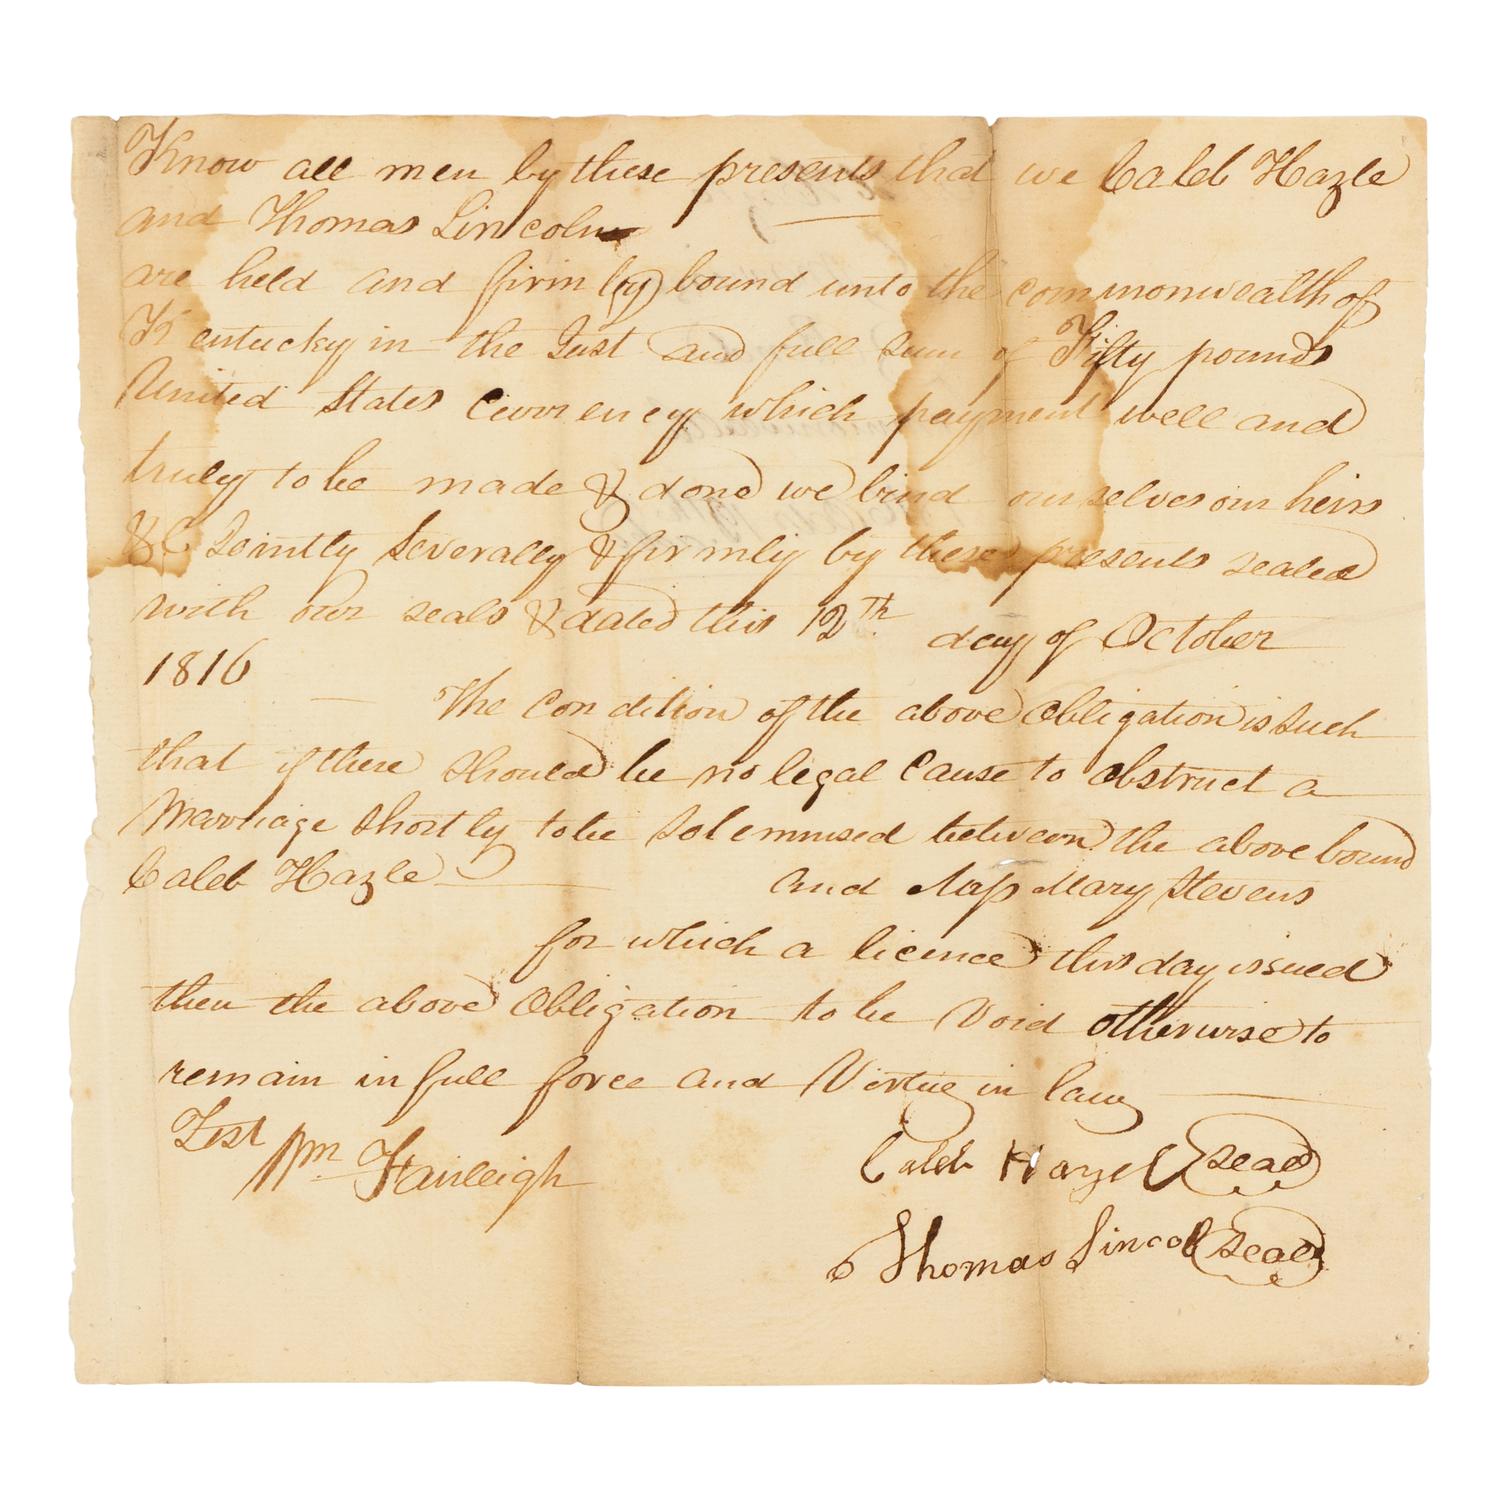 Know all men by these presents that we Caleb Hazle
and Thomas Lincoln
are held and firm (ly) bound unto the commonwealth of
Kentucky in the Just and full sum of Fifty pounds
United States Currency which payment well and
truly to be made & done we bind our selves our heirs
&C Jointly Severally & firmly by these presents sealed
with our seals & dated this 12th day of October
1816 — The Condition of the above Obligation is Such
that if there Should be no legal Cause to obstruct a
Marriage Shortly to be Solemnised between the above bound
Caleb Hazle and Miss Mary Stevens
for which a licence this day issued
then the above Obligation to be Void otherwise to
remain in full force and Virtue in law
Test Wm Fairleigh
Caleb Hazel Seal
Thomas Lincol Seal